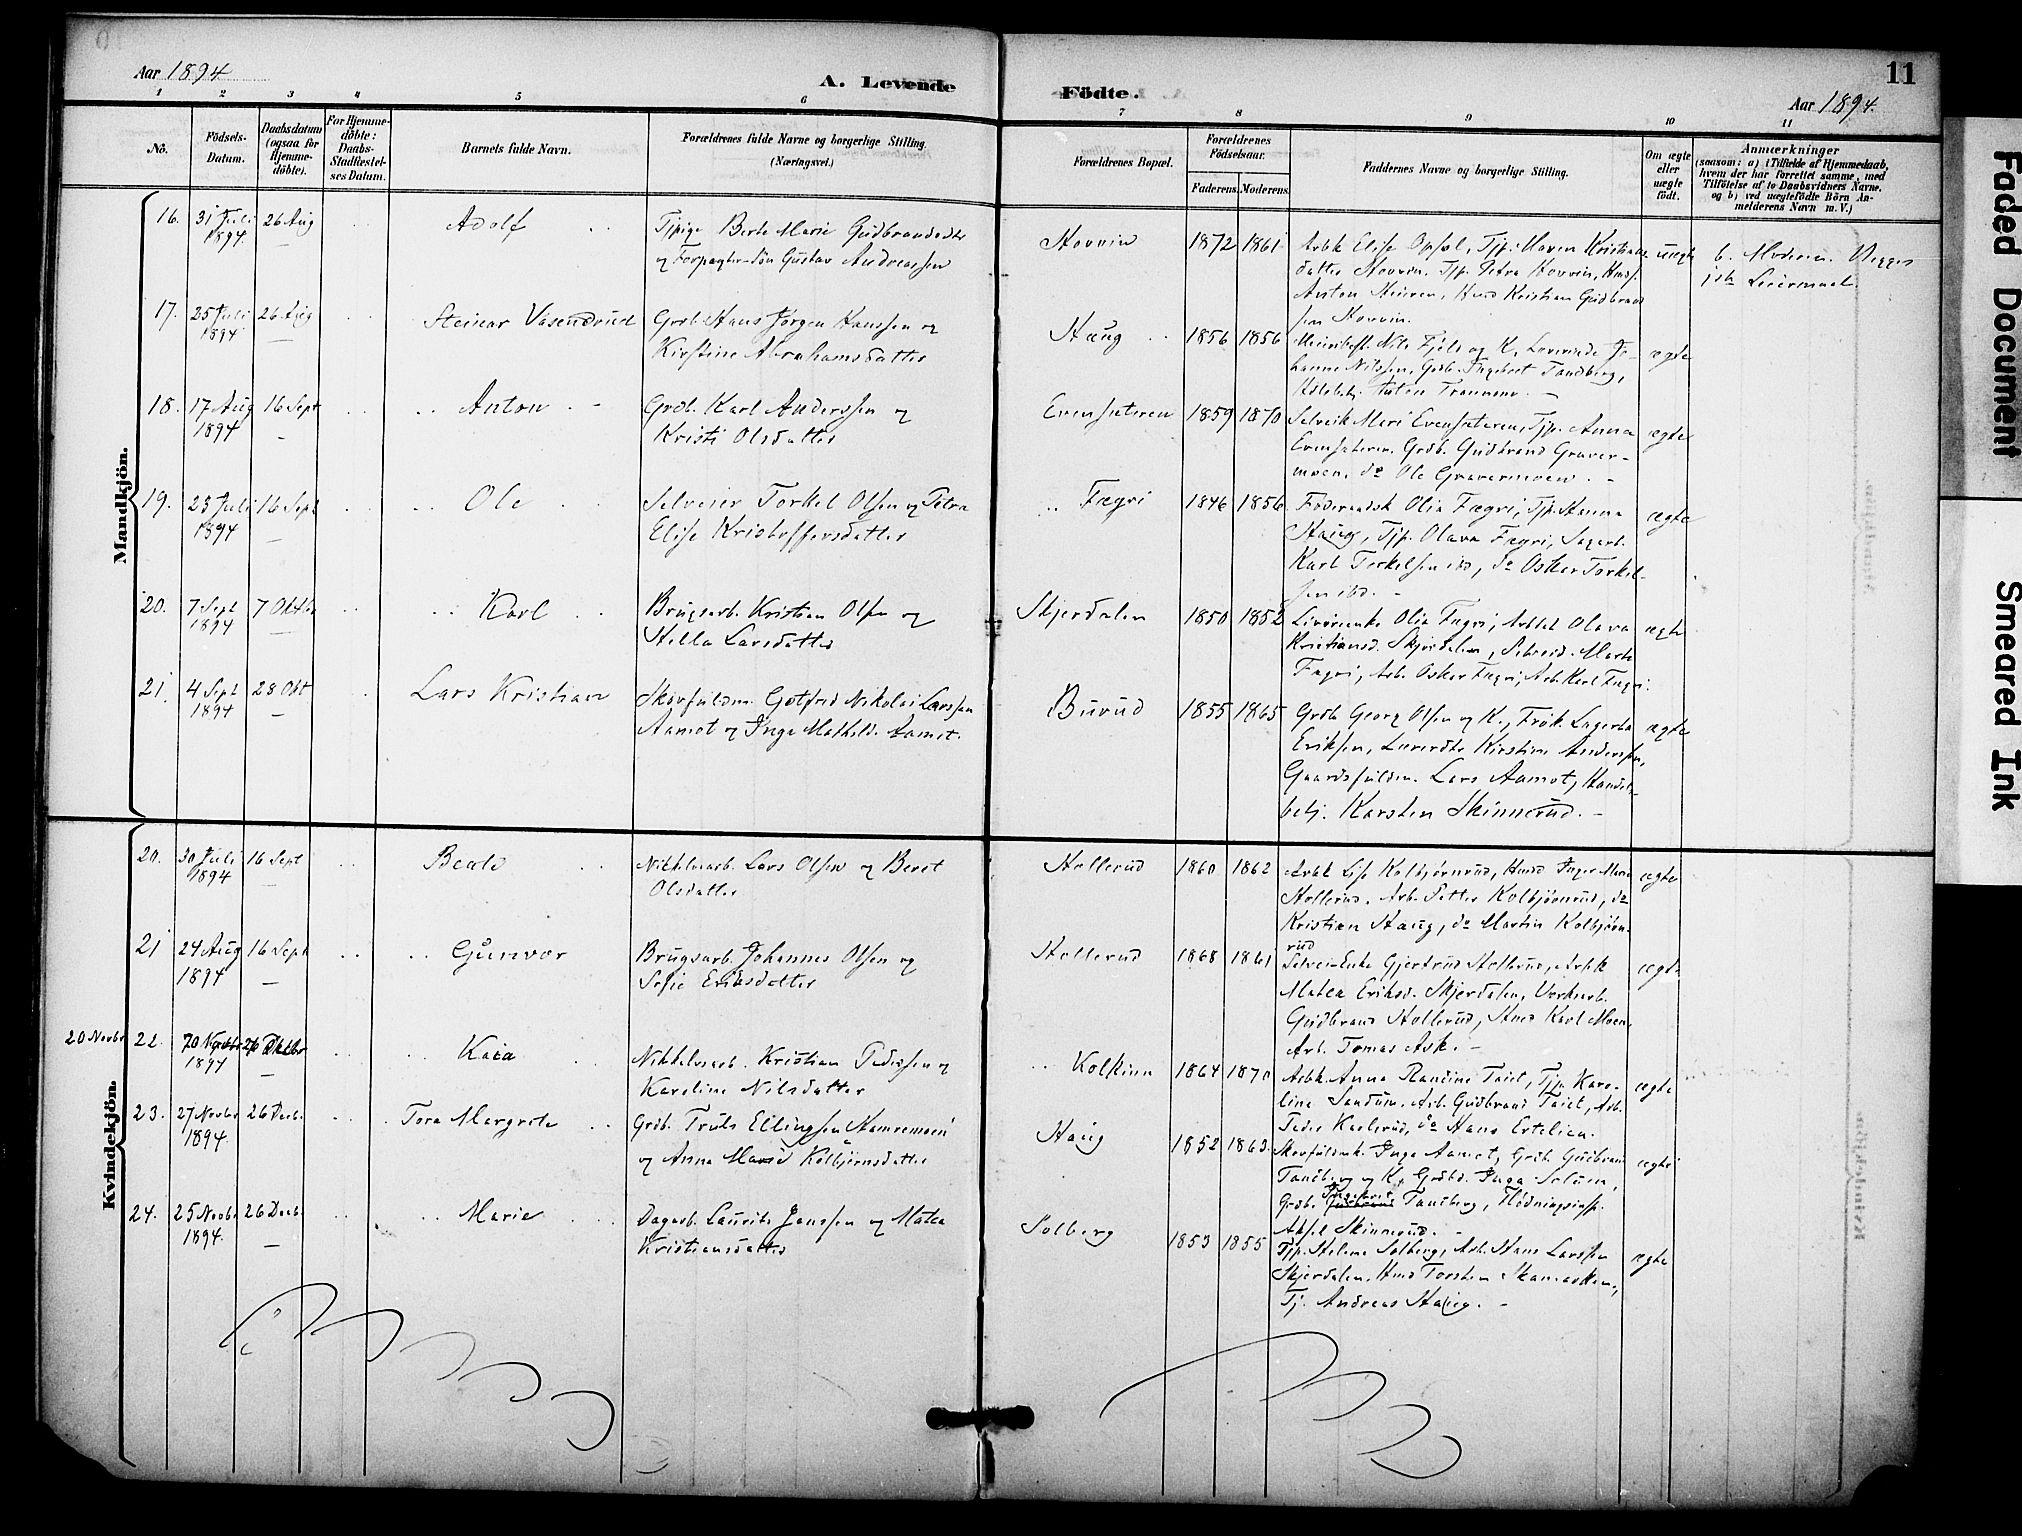 Aar 1894
A. Levende
Födte.
11
Aar 1894.
1 2 3 4 5 6 7 8 9 10 11
No.
Födsels-Datum.
Daabsdatum (ogsaa for Hjemme-döbte).
For Hjemme-döbte: Daabs-Stadfæstel-ses Datum.
Barnets fulde Navn.
Forældrenes fulde Navne og borgerlige Stilling.
(Næringsvei.)
Forældrenes Bopæl.
Forældrenes Födselsaar.
Faderens. Moderens.
Faddernes Navne og borgerlige Stilling.
Om ægte eller uægte födt.
Anmærkninger
(saasom: a) i Tilfælde af Hjemmedaab,
hvem der har forrettet samme, med
Tilföielse af to Daabsvidners Navne.
og b) ved uægtefödte Börn An-
melderens Navn m. V.)
Mandkjön.
16. 31 Juli 1894. 26 Aug Adolf
Tjpige Berte Marie Gudbrandsdtr
og Forpagter-Søn Gustav Andreassen
Hovvin 1872 1861
Arbk Elise Opsal, Tjp. Maren Kristians-
datter Hovvin. Tjp. Petra Hovvin, Husf.
Anton Muren, Husf Kristian Gudbrand
sen Hovvin.
uægte
b. Moderen.
17. 25 Juli 1894 26 Aug Steinar Vasendrud
Grdb. Hans Jørgen Hanssen og
Kirstine Abrahamsdatter
Haug 1856 1856
Nils Fjeld og K, Jo-
hanne Nilssen, Grdb. Ingebret Tandberg,
Anton
ægte
18. 17 Aug 1894 16 Sept Anton
Grdb. Karl Anderssen og
Kristi Olsdatter
Evensæteren 1859 1870
Selveik Mari Evensæteren, Tjp. Anna
Evensæteren. Grdb. Gudbrand Graver-
moen, do Ole Gravermoen.
ægte
19. 23 Juli 1894 16 Sept Ole
Selveier Torkel Olsen og Petra
Elise Kristoffersdatter
Fægri 1846 1856
Føderaadsk Olia Fægri, Tjp. Hanna
Haug, Tjp. Olava Fægri, Sagarb.
Karl Torkelsen ibd, do Oskar Torkel-
sen ibd.
ægte
20. 7 Sept 1894 7 Oktbr Karl
Brugsarb. Kristian Olsen og
Hella Larsdatter
Skjerdalen 1850 1852
Olia Fægri, Arbk Olava
Kristiansd. Skjerdalen, Marte
Fægri, Arb. Oskar Fægri, Arb Karl Fægri.
ægte
21. 4 Sept 1894 28 Okt Lars Kristian
Skovfuldm. Gotfred Nikolai Larssen
Aamot og Inga Mathild. Aamot.
Burud 1855 1865
Grdb Georg Olsen og K., Frøk. Lagerta
Eriksen, Kirstine Anderssen,
Gaardsfuldm. Lars Aamot, Handels-
betj. Karsten Skinnerud.
ægte
Kvindekjön.
20. 30 Juli 1894 16 Sept Beate
Nikkelverarb. Lars Olsen og Beret
Olsdatter
Hollerud 1860 1862
Arbk Lise Kolbjørnrud, Husf Inger Marie
Hollerud. Arb. Petter Kolbjørnrud, do
Kristian Haug, do Martin Kolbjørn-
rud
ægte
21 24 Aug 1894 16 Sept Gunvor
Brugsarb. Johannes Olsen og
Sofie Eriksdatter
Hollerud 1868 1861
Selvei-Enke Gjertrud Hollerud, Arbk
Matea Eriksd. Skjerdalen, Verksarb.
Gudbrand Hollerud, Husf Karl Moen,
Arb. Tomas Ask.
ægte
20 Novbr 22. 1894 Kaia
Nikkelverarb. Kristian Pederssen og
Karoline Nilsdatter
Kolkinn 1864 1870
Arbk. Anna Randine Taiet, Tjp. Karo-
line Sandum, Arb. Gudbrand Taiet, Arb.
Peder Karlsrud, do Hans Ertelien.
ægte
23. 27 Novbr 1894. 26 Decb. Tora Margrete
Grdb. Truls Ellingsen Hamremoen
og Anna Marie Kolbjørnsdatter
Haug 1852 1863.
Skovfuldmk. Inga Aamot, Grdb. Gudbrand
Tandberg og K, Grdbd. Inga Solum,
Grdb. Ingebret Tandberg, Flødningsinsp.
Axsel Skinnerud.
ægte
24. 25 Novbr 1894. 26 Decb. Marie
Dagarb. Laurits Janssen og Matea
Kristiansdatter
Solberg 1853 1855
Tjp. Helene Solberg, Arb. Hans Larssen
Skjerdalen. Husf Torsten
Tj. Andreas Haug.
ægte
Faded Document
Smeared Ink